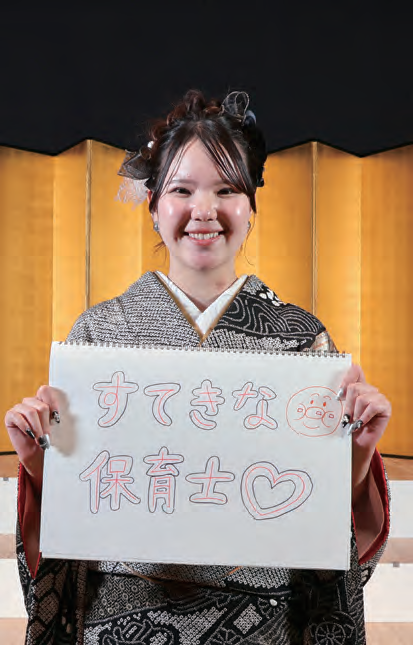 すてきな
保育士♡